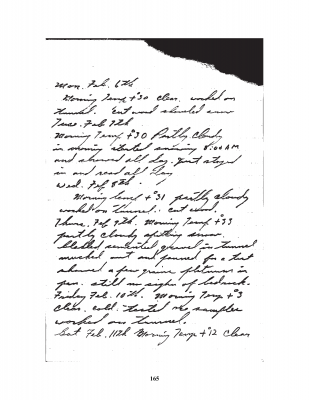 Mon. Feb. 6th
Morning Temp +30 clear. worked on
tunnel. Cut and shoveled snow
Tues. Feb 7th
Morning Temp +30 Partly Cloudy
in morning started snowing 8:00 AM
and snowed all day. Just stayed
in and read all day
Wed. Feb 8th.
Morning temp +31 partly cloudy
worked on tunnel. cut wood.
Thurs. Feb 9th. Morning Temp +33
partly cloudy spitting snow.
gravel in tunnel
out and panned for a test
showed a few grains platinum in
pan. still no sign of bedrock.
Friday Feb. 10th. Morning Temp +3
Clear. cold. tested samples
worked on tunnel.
Sat Feb. 11th Morning Temp +12 Clear
165